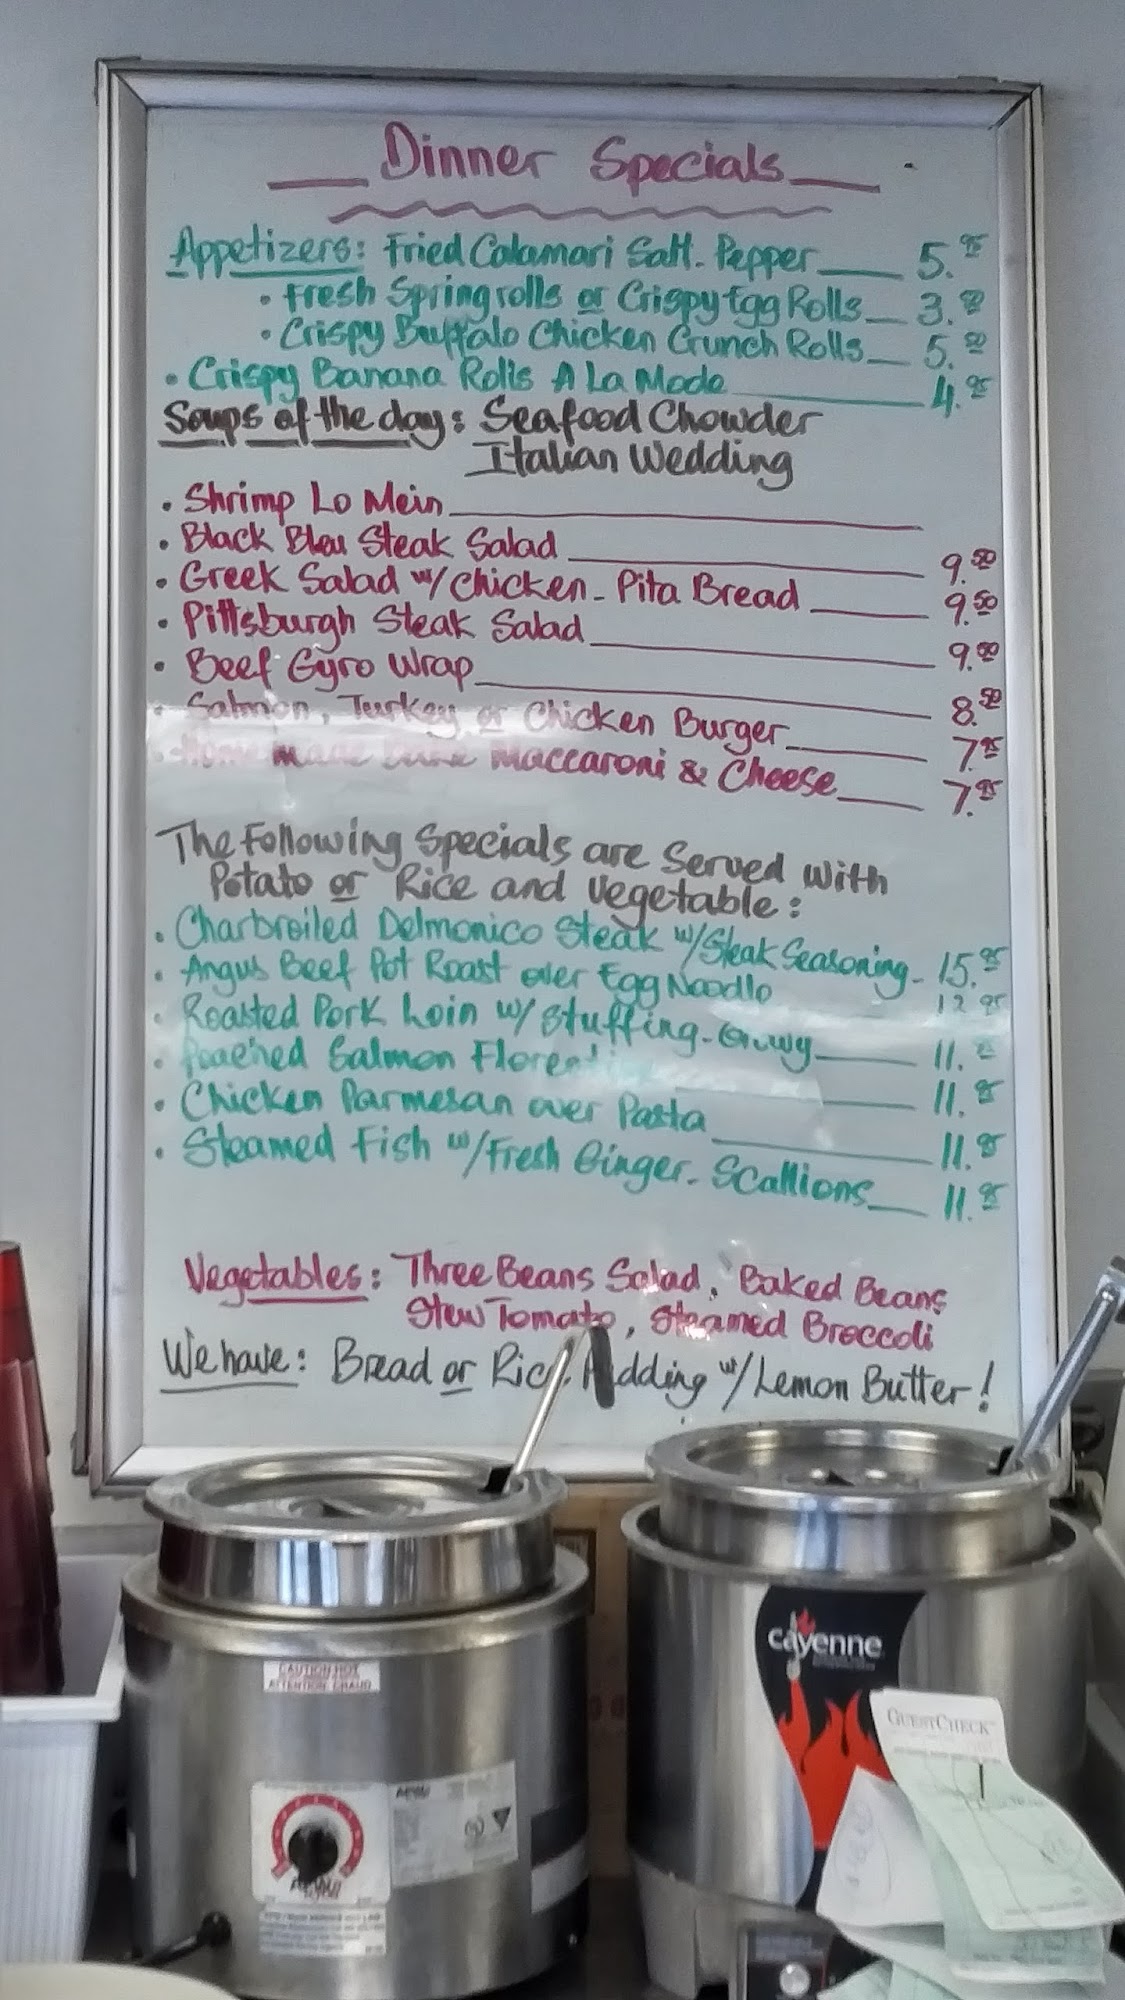 Dinner Specials
Appetizers: Fried Calamari Salt. Pepper 5.95
• Fresh Springrolls or Crispy Egg Rolls 3.50
• Crispy Buffalo Chicken Crunch Rolls 5.50
• Crispy Banana Rolls A La Mode 4.95
Soups of the day: Seafood Chowder
Italian Wedding
• Shrimp Lo Mein
• Black Bleu Steak Salad 9.50
• Greek Salad w/ Chicken - Pita Bread 9.50
• Pittsburgh Steak Salad 9.00
• Beef Gyro Wrap 8.50
• Salmon, Turkey or Chicken Burger 7.95
• Home made Bake Maccaroni & Cheese 7.95
The Following Specials are Served with
Potato or Rice and Vegetable:
• Charbroiled Delmonico Steak w/Steak Seasoning - 15.95
• Angus Beef Pot Roast over Egg Noodle 12.95
• Roasted Pork Loin w/ Stuffing - Gravy 11.
• Poached Salmon 11.95
• Chicken Parmesan over Pasta 11.95
• Steamed Fish w/Fresh Ginger - Scallions 11.95
Vegetables: Three Beans Salad, Baked Beans
Stew Tomato, Steamed Broccoli
We have: Bread or Rice Pudding w/Lemon Butter!
cayenne
CAUTION HOT
ATTENTION CHAUD
GUESTCHECK